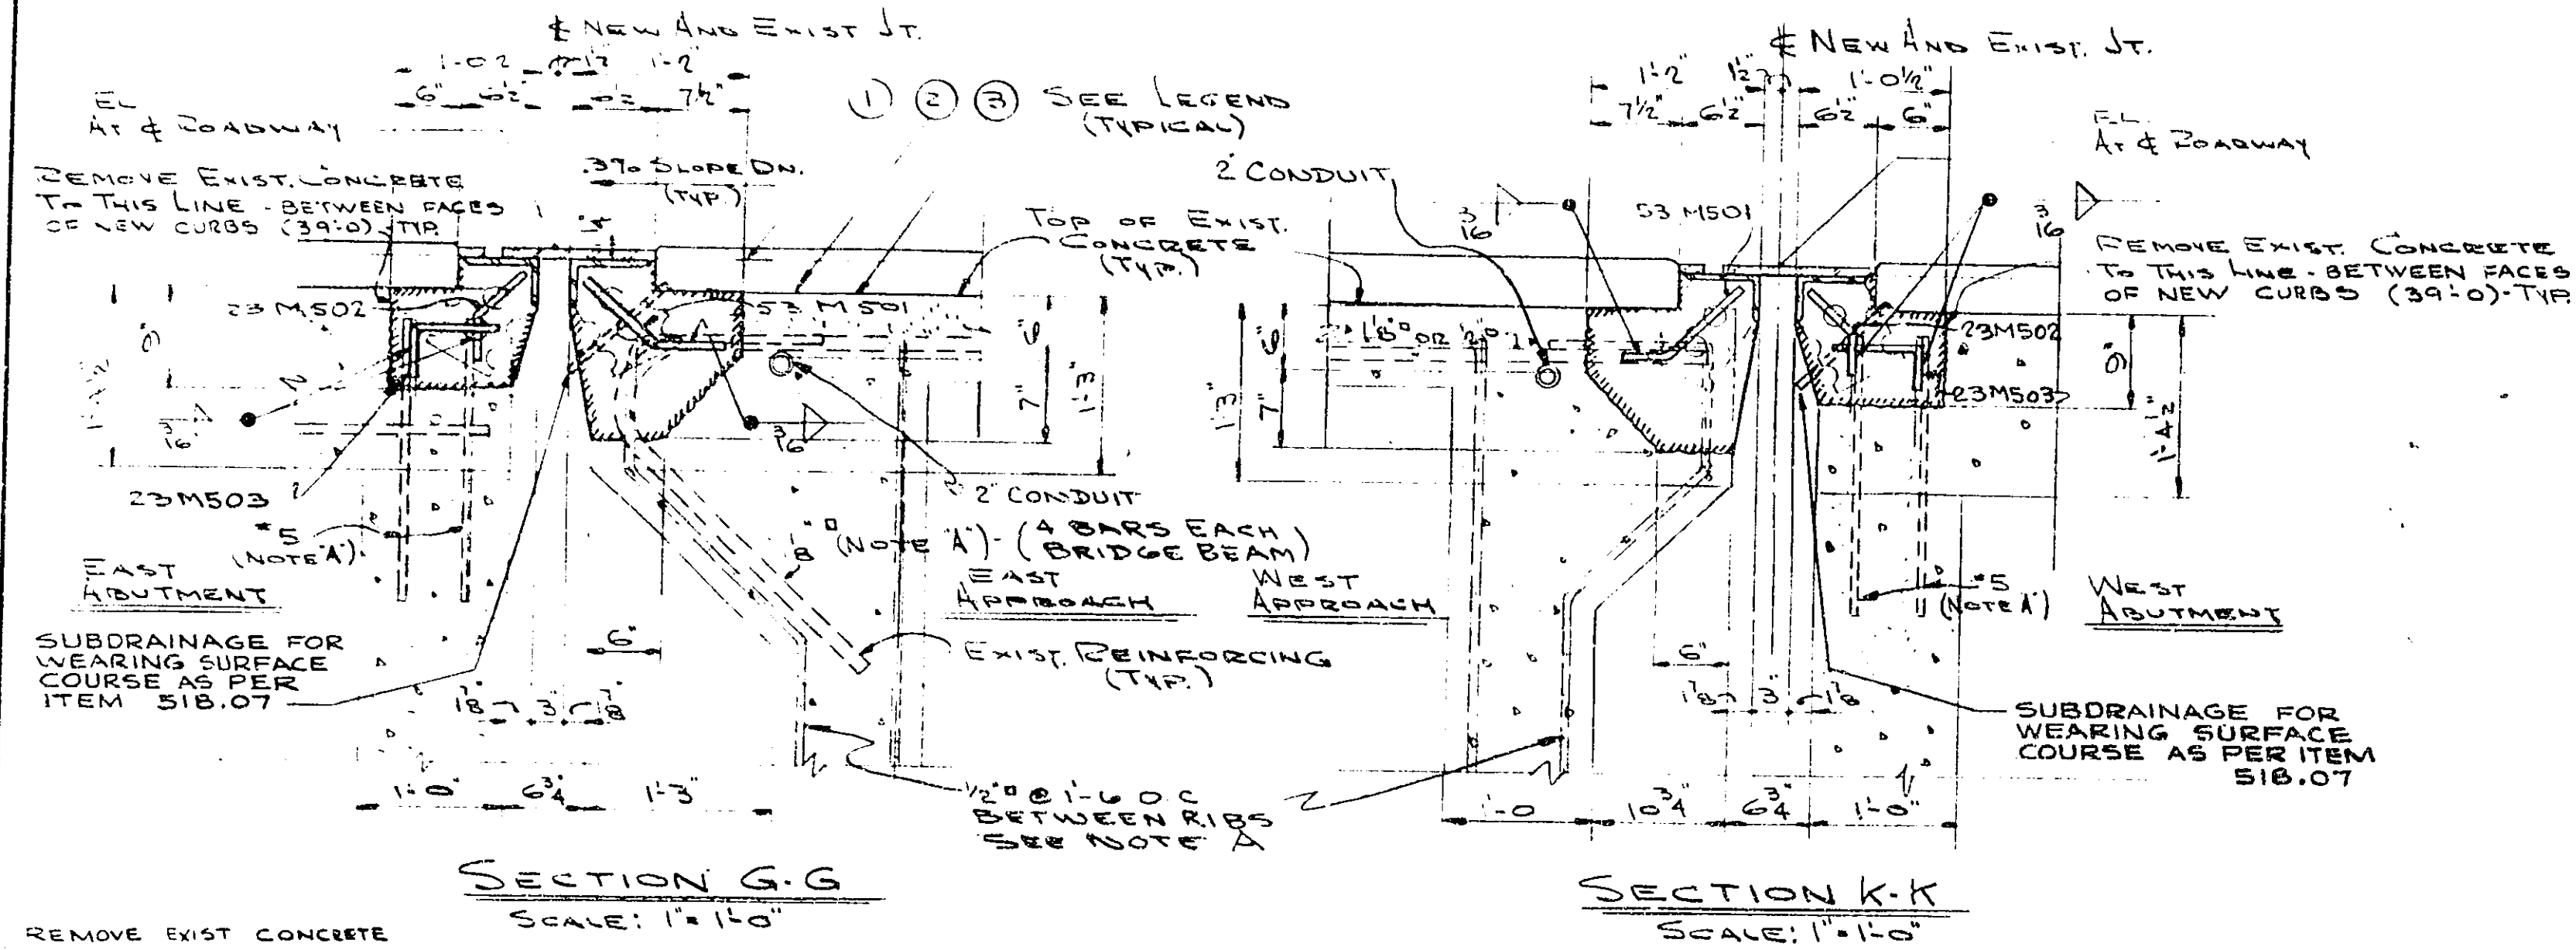 ℄ NEW AND EXIST JT.
1-2"
6" 6½ 6½ 7½"
EL
AT ℄ ROADWAY
① ② ③ SEE LEGEND
(TYPICAL)
REMOVE EXIST. CONCRETE
TO THIS LINE - BETWEEN FACES
OF NEW CURBS (39'-0)-TYP.
.3% SLOPE DN.
(TYP.)
TOP OF EXIST.
CONCRETE
(TYP.)
23 M502
53 M501
9"
6"
7"
1'-3"
3/16
3/16
23M503
#5
(NOTE "A")
2" CONDUIT
(NOTE "A") - (4 BARS EACH
BRIDGE BEAM)
EAST
ABUTMENT
EAST
APPROACH
SUBDRAINAGE FOR
WEARING SURFACE
COURSE AS PER
ITEM 518.07
6"
EXIST. REINFORCING
(TYP.)
1⅞ 3" ⅞"
1'-0" 6¾" 1'-3"
½"□ @ 1'-6 O.C
BETWEEN RIBS
SEE NOTE A
SECTION G-G
SCALE: 1" = 1'-0"
REMOVE EXIST CONCRETE
℄ NEW AND EXIST. JT.
1'-2" 1½" 1'-0½"
7½" 6½" 6½" 6"
EL.
AT ℄ ROADWAY
2" CONDUIT
3/16
53 M501
3/16
REMOVE EXIST. CONCRETE
TO THIS LINE - BETWEEN FACES
OF NEW CURBS (39'-0)-TYP.
6"
7"
1'-3"
23M502
23M503
9"
1'-4½"
WEST
APPROACH
#5
(NOTE "A")
WEST
ABUTMENT
6"
1⅞ 3" 1⅞
SUBDRAINAGE FOR
WEARING SURFACE
COURSE AS PER ITEM
518.07
1'-0 10¾" 6¾" 1'-0"
SECTION K-K
SCALE: 1" = 1'-0"